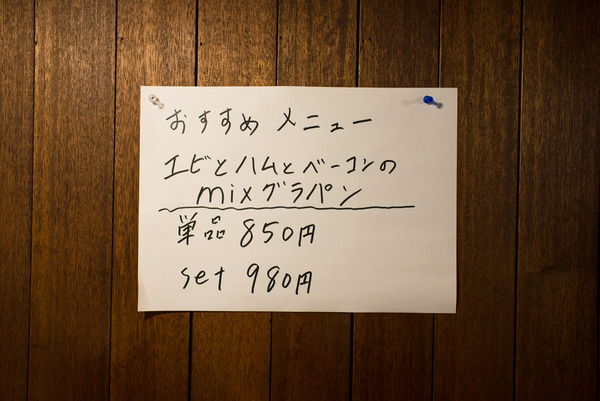 おすすめ メニュー
エビとハムとベーコンの
mixグラパン
単品 850円
set 980円